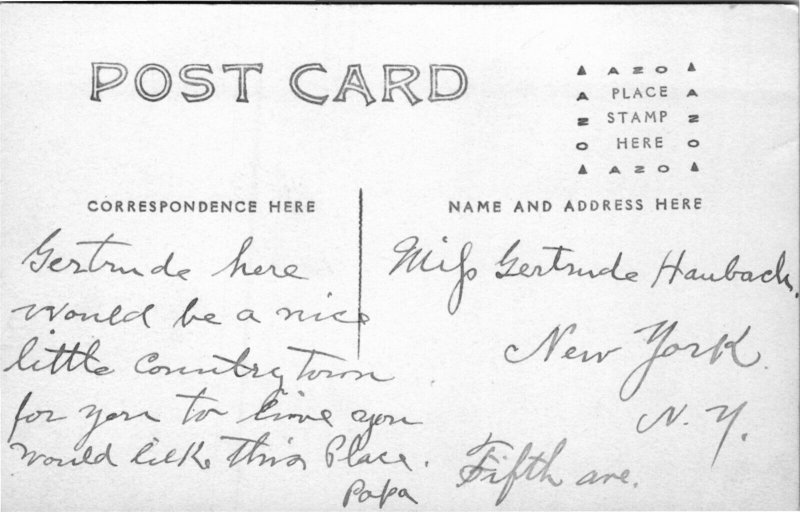 POST CARD
▲ A Z O ▲
A PLACE A
Z STAMP Z
O HERE O
▲ A Z O ▲
CORRESPONDENCE HERE
NAME AND ADDRESS HERE
Gertrude here
would be a nice
little Country Town
for you to live you
would like this Place.
Papa
Miss Gertrude Haubach.
New York
N. Y.
Fifth ave.